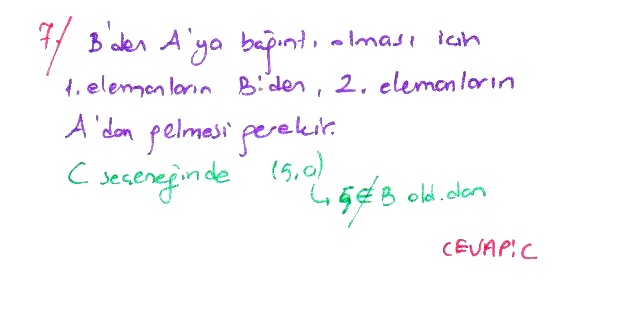 7/ B'den A'ya bağıntı olması için
1. elemanların B'den, 2. elemanların
A'dan gelmesi gerekir.
C seçeneğinde (5,0)
↳ 5∉B old.dan
CEVAP: C